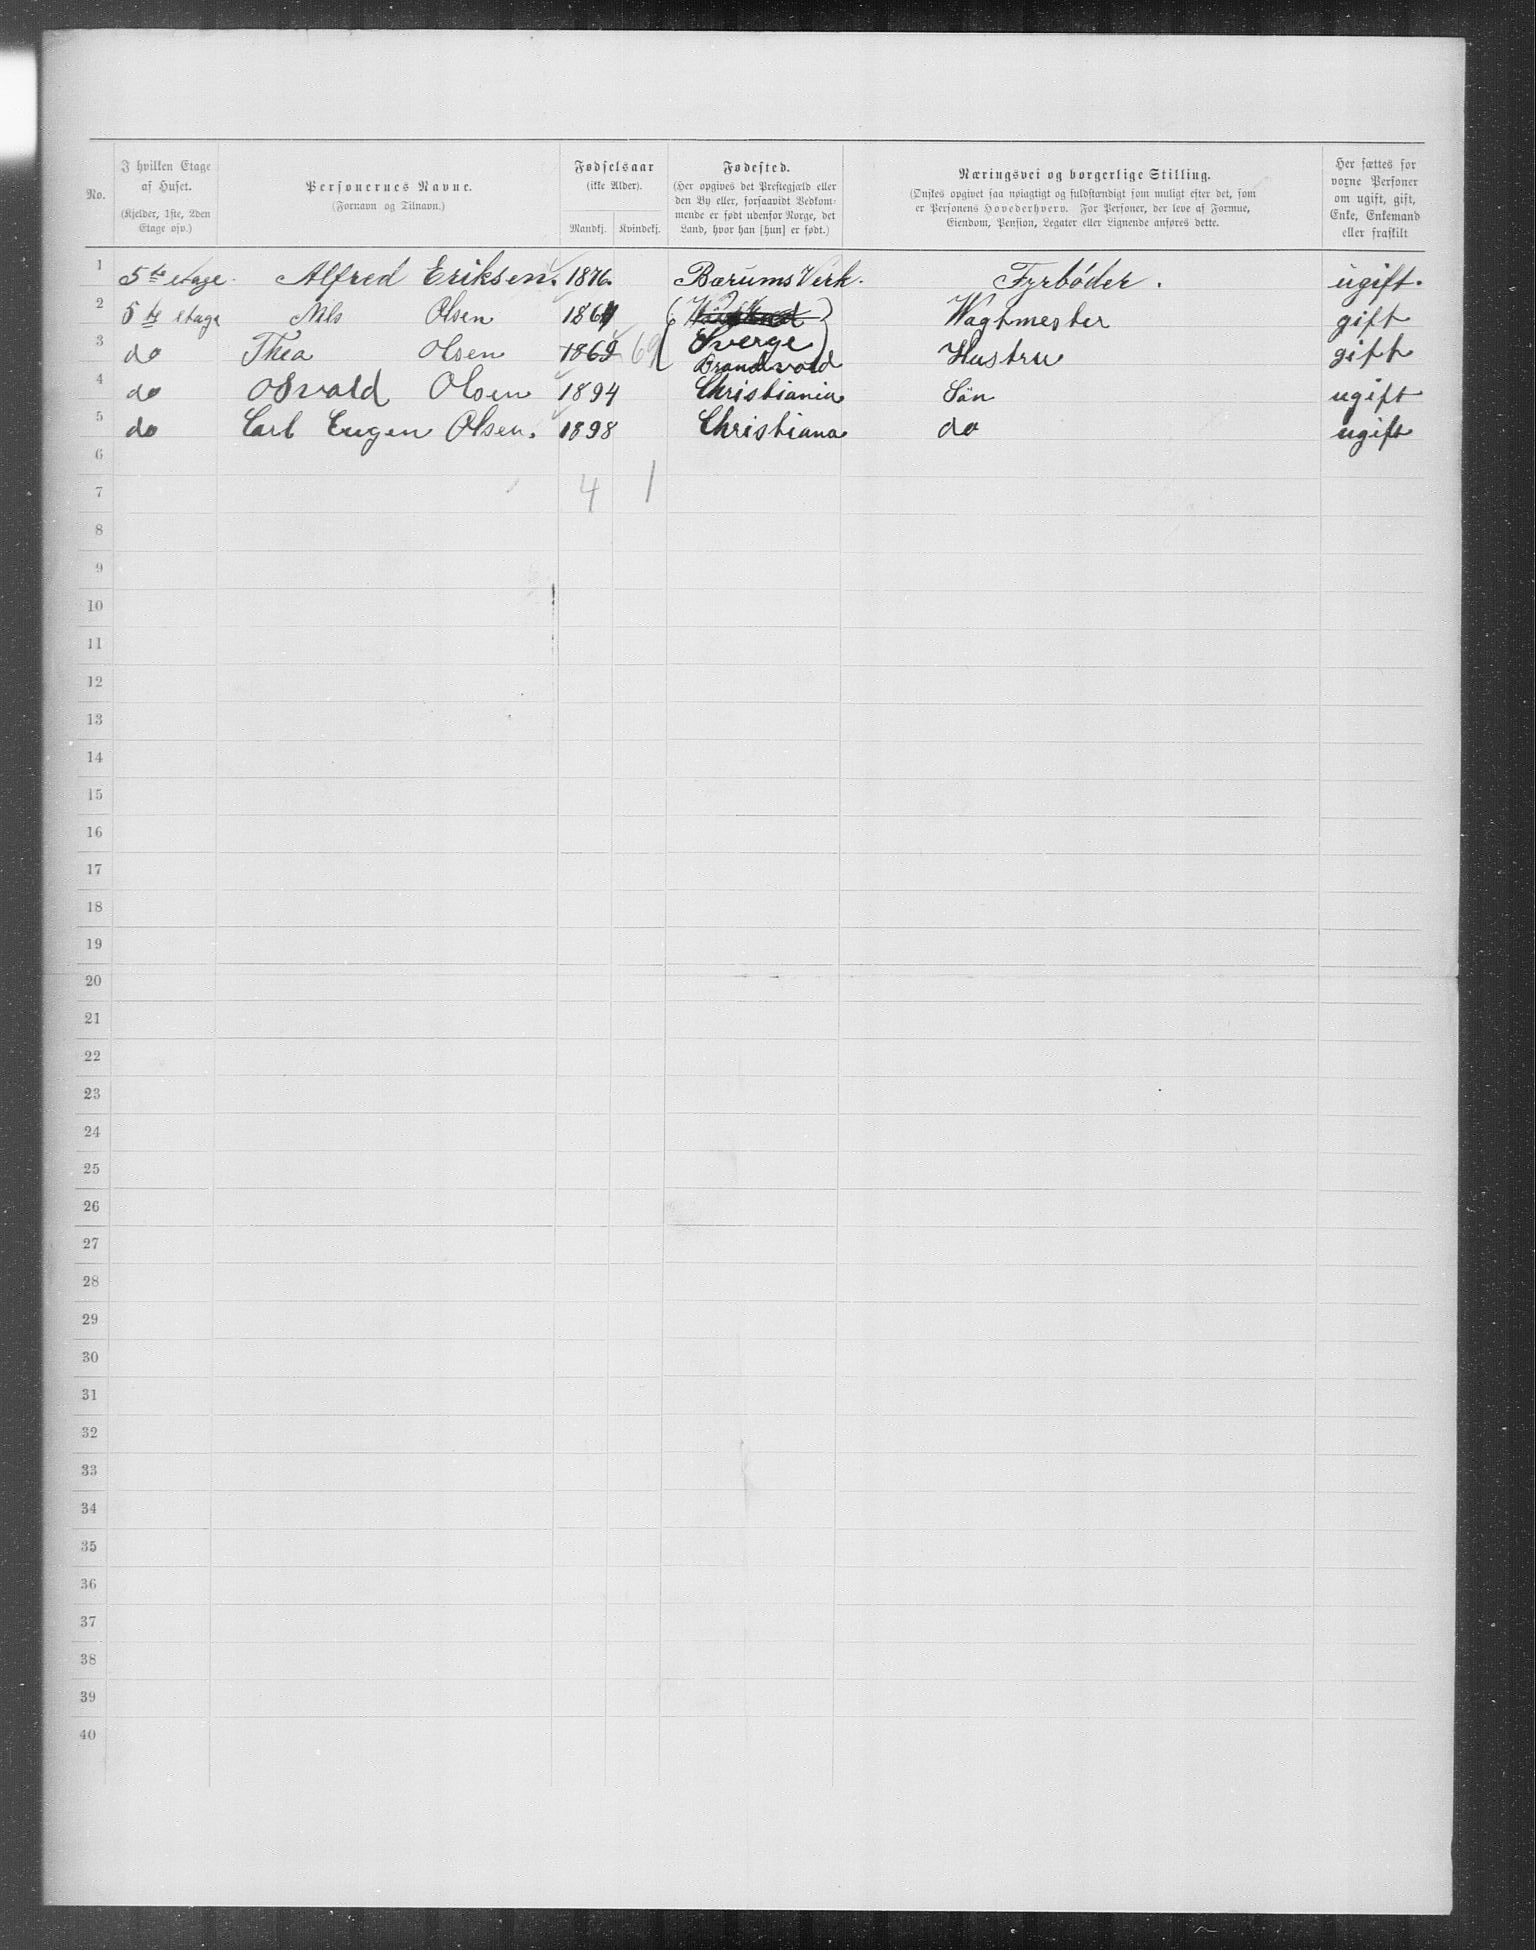 No.
I hvilken Etage
af Huset.
(Kjelder, 1ste, 2den
Etage osv.)
Personernes Navne.
(Fornavn og Tilnavn.)
Fødselsaar
(ikke Alder).
Mandkj. Kvindekj.
Fødested.
(Her opgives det Prestegjæld eller
den By eller, forsaavidt Vedkom-
mende er født udenfor Norge, det
Land, hvor han [hun] er født.)
Næringsvei og borgerlige Stilling.
(Ønskes opgivet saa nøiagtigt og fuldstændigt som muligt efter det, som
er Personens Hovederhverv. For Personer, der leve af Formue,
Eiendom, Pension, Legater eller Lignende anføres dette.
Her sættes for
voxne Personer
om ugift, gift,
Enke, Enkemand
eller fraskilt
1 5te etage. Alfred Eriksen. 1876. Bærums Verk. Fyrbøder. ugift.
2 5te etage Nils Olsen 1864 (Sverge) Wagtmester gift
3 do Thea Olsen 1869 69 Brandvold Hustru gift
4 do Osvald Olsen 1894 Christiania Sön ugift
5 do Carl Eugen Olsen. 1898 Christiana do ugift
6
7 4 1
8
9
10
11
12
13
14
15
16
17
18
19
20
21
22
23
24
25
26
27
28
29
30
31
32
33
34
35
36
37
38
39
40